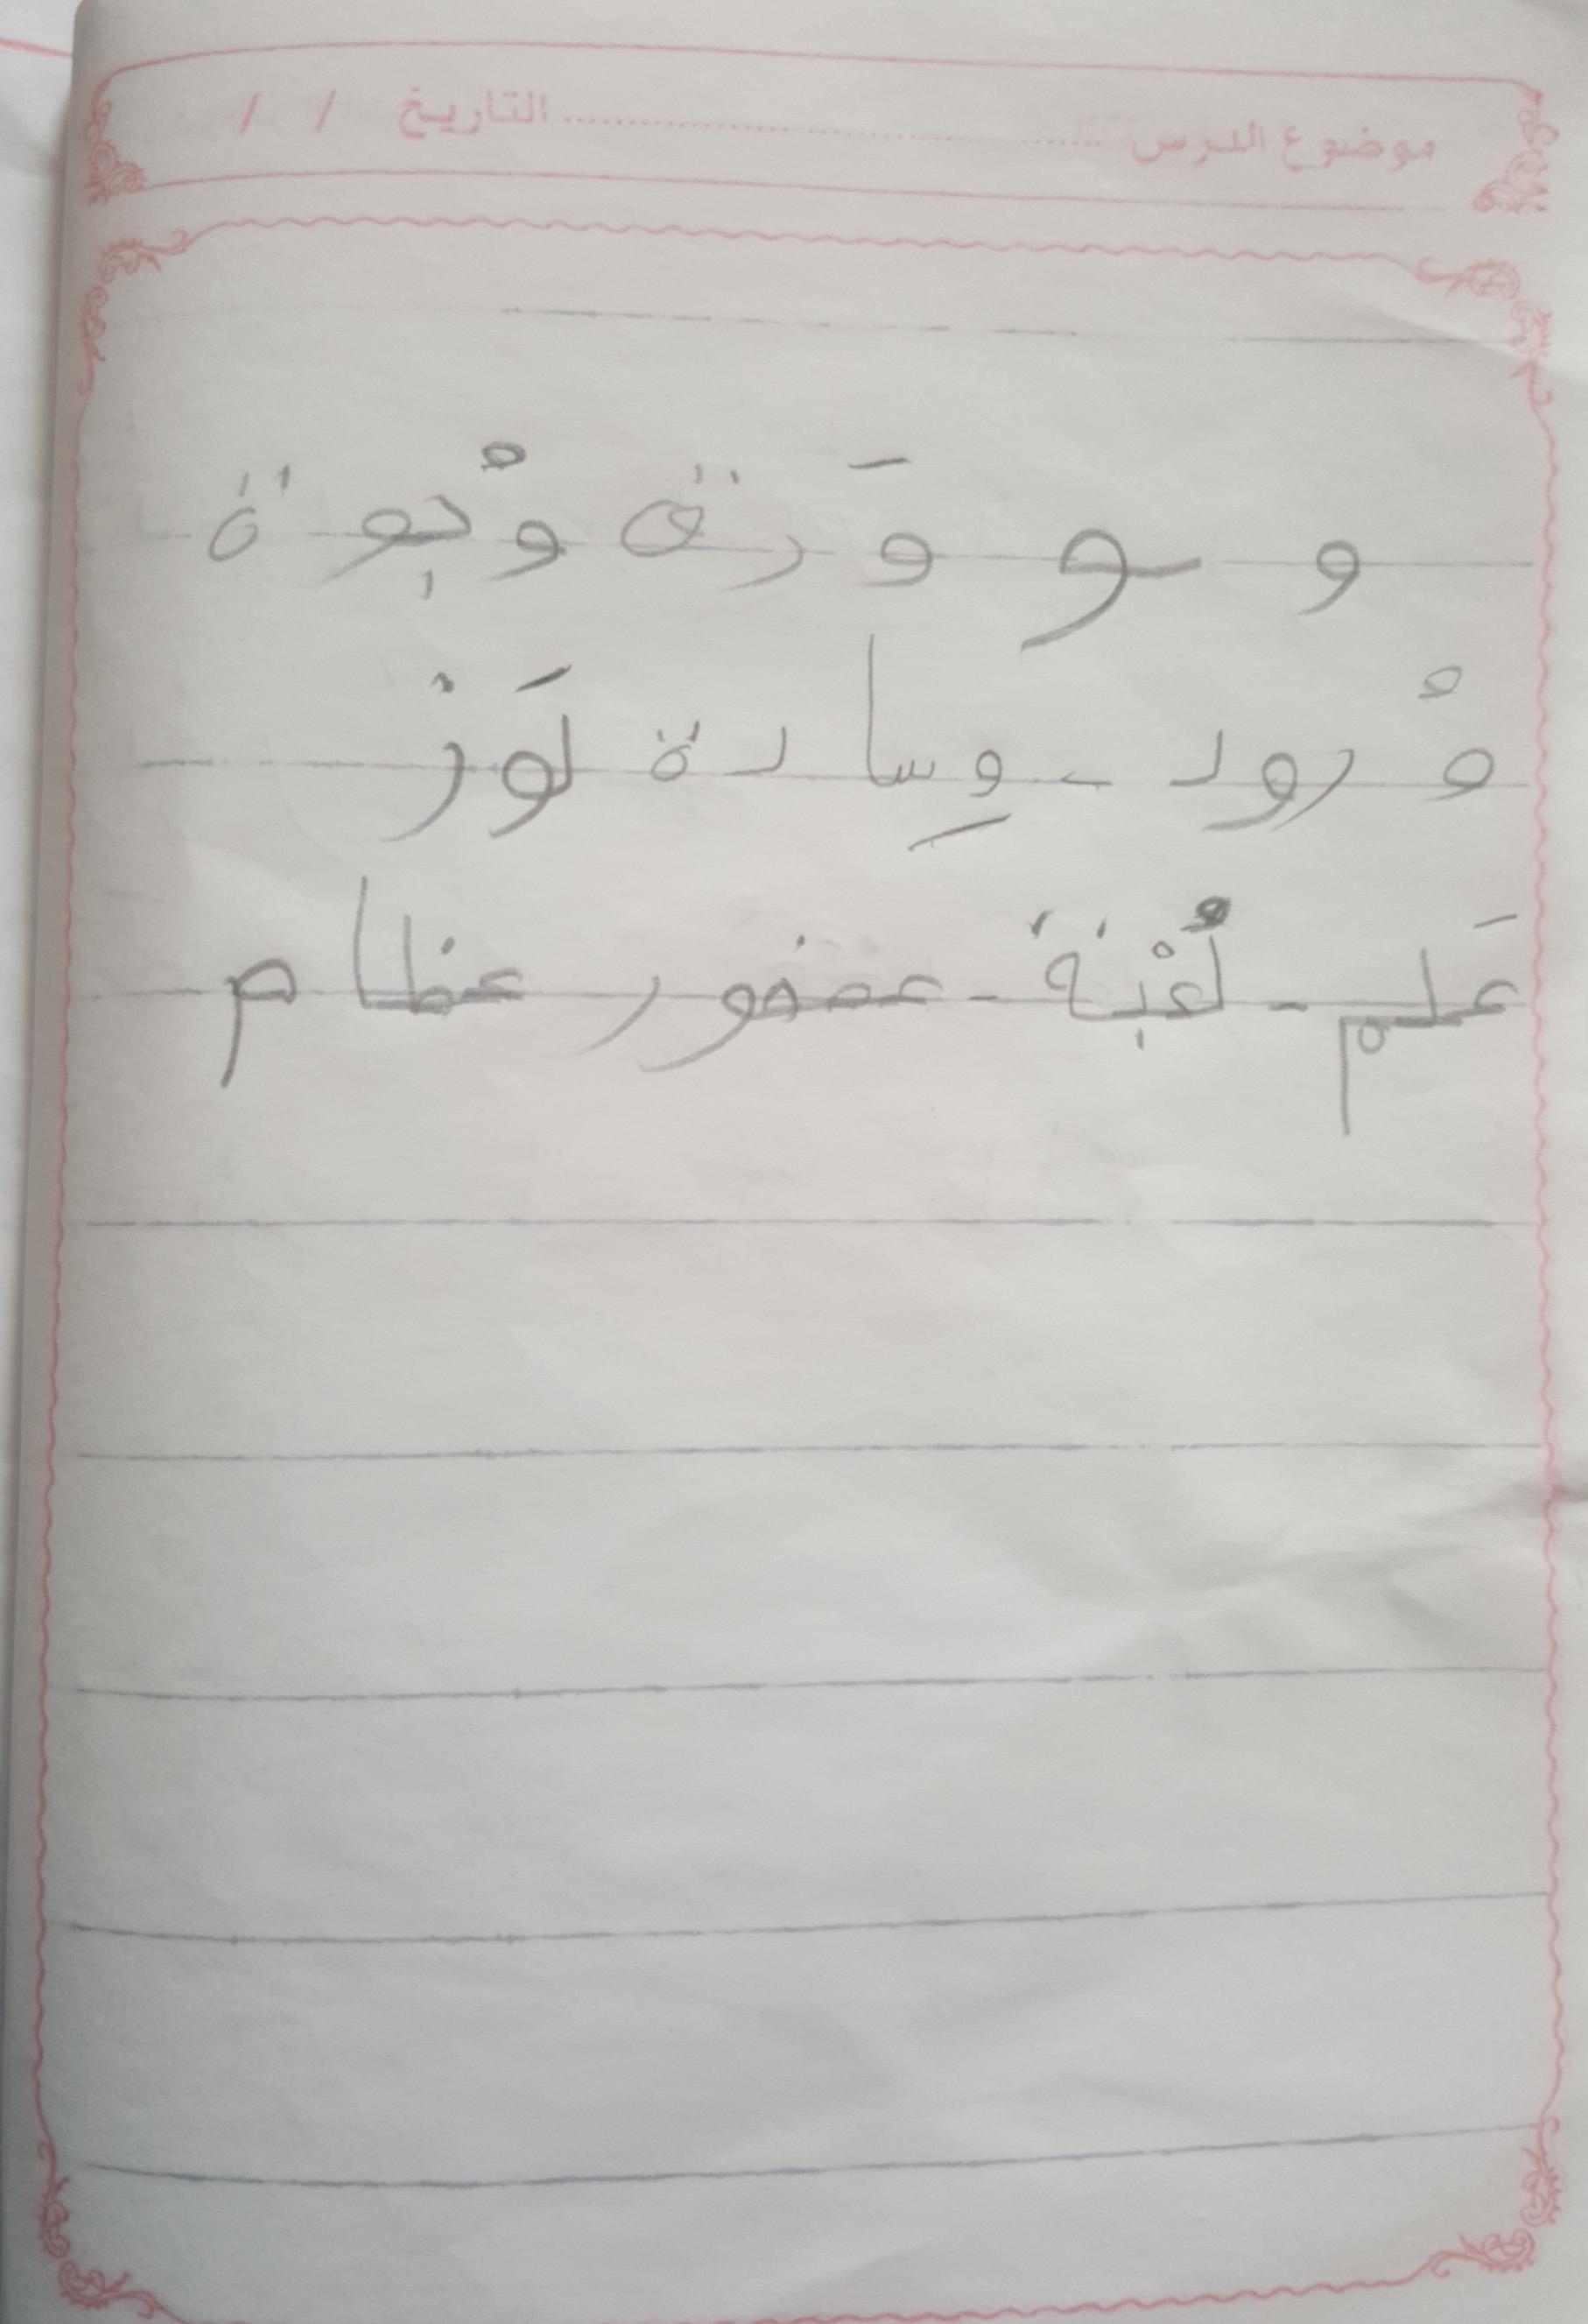 موضوع الدرس .......................... التاريخ / /
و ـو وَرقة وُبوة
وُرود - وِسادة لَوز
عَلم - لُعْبة - عصفور عظام